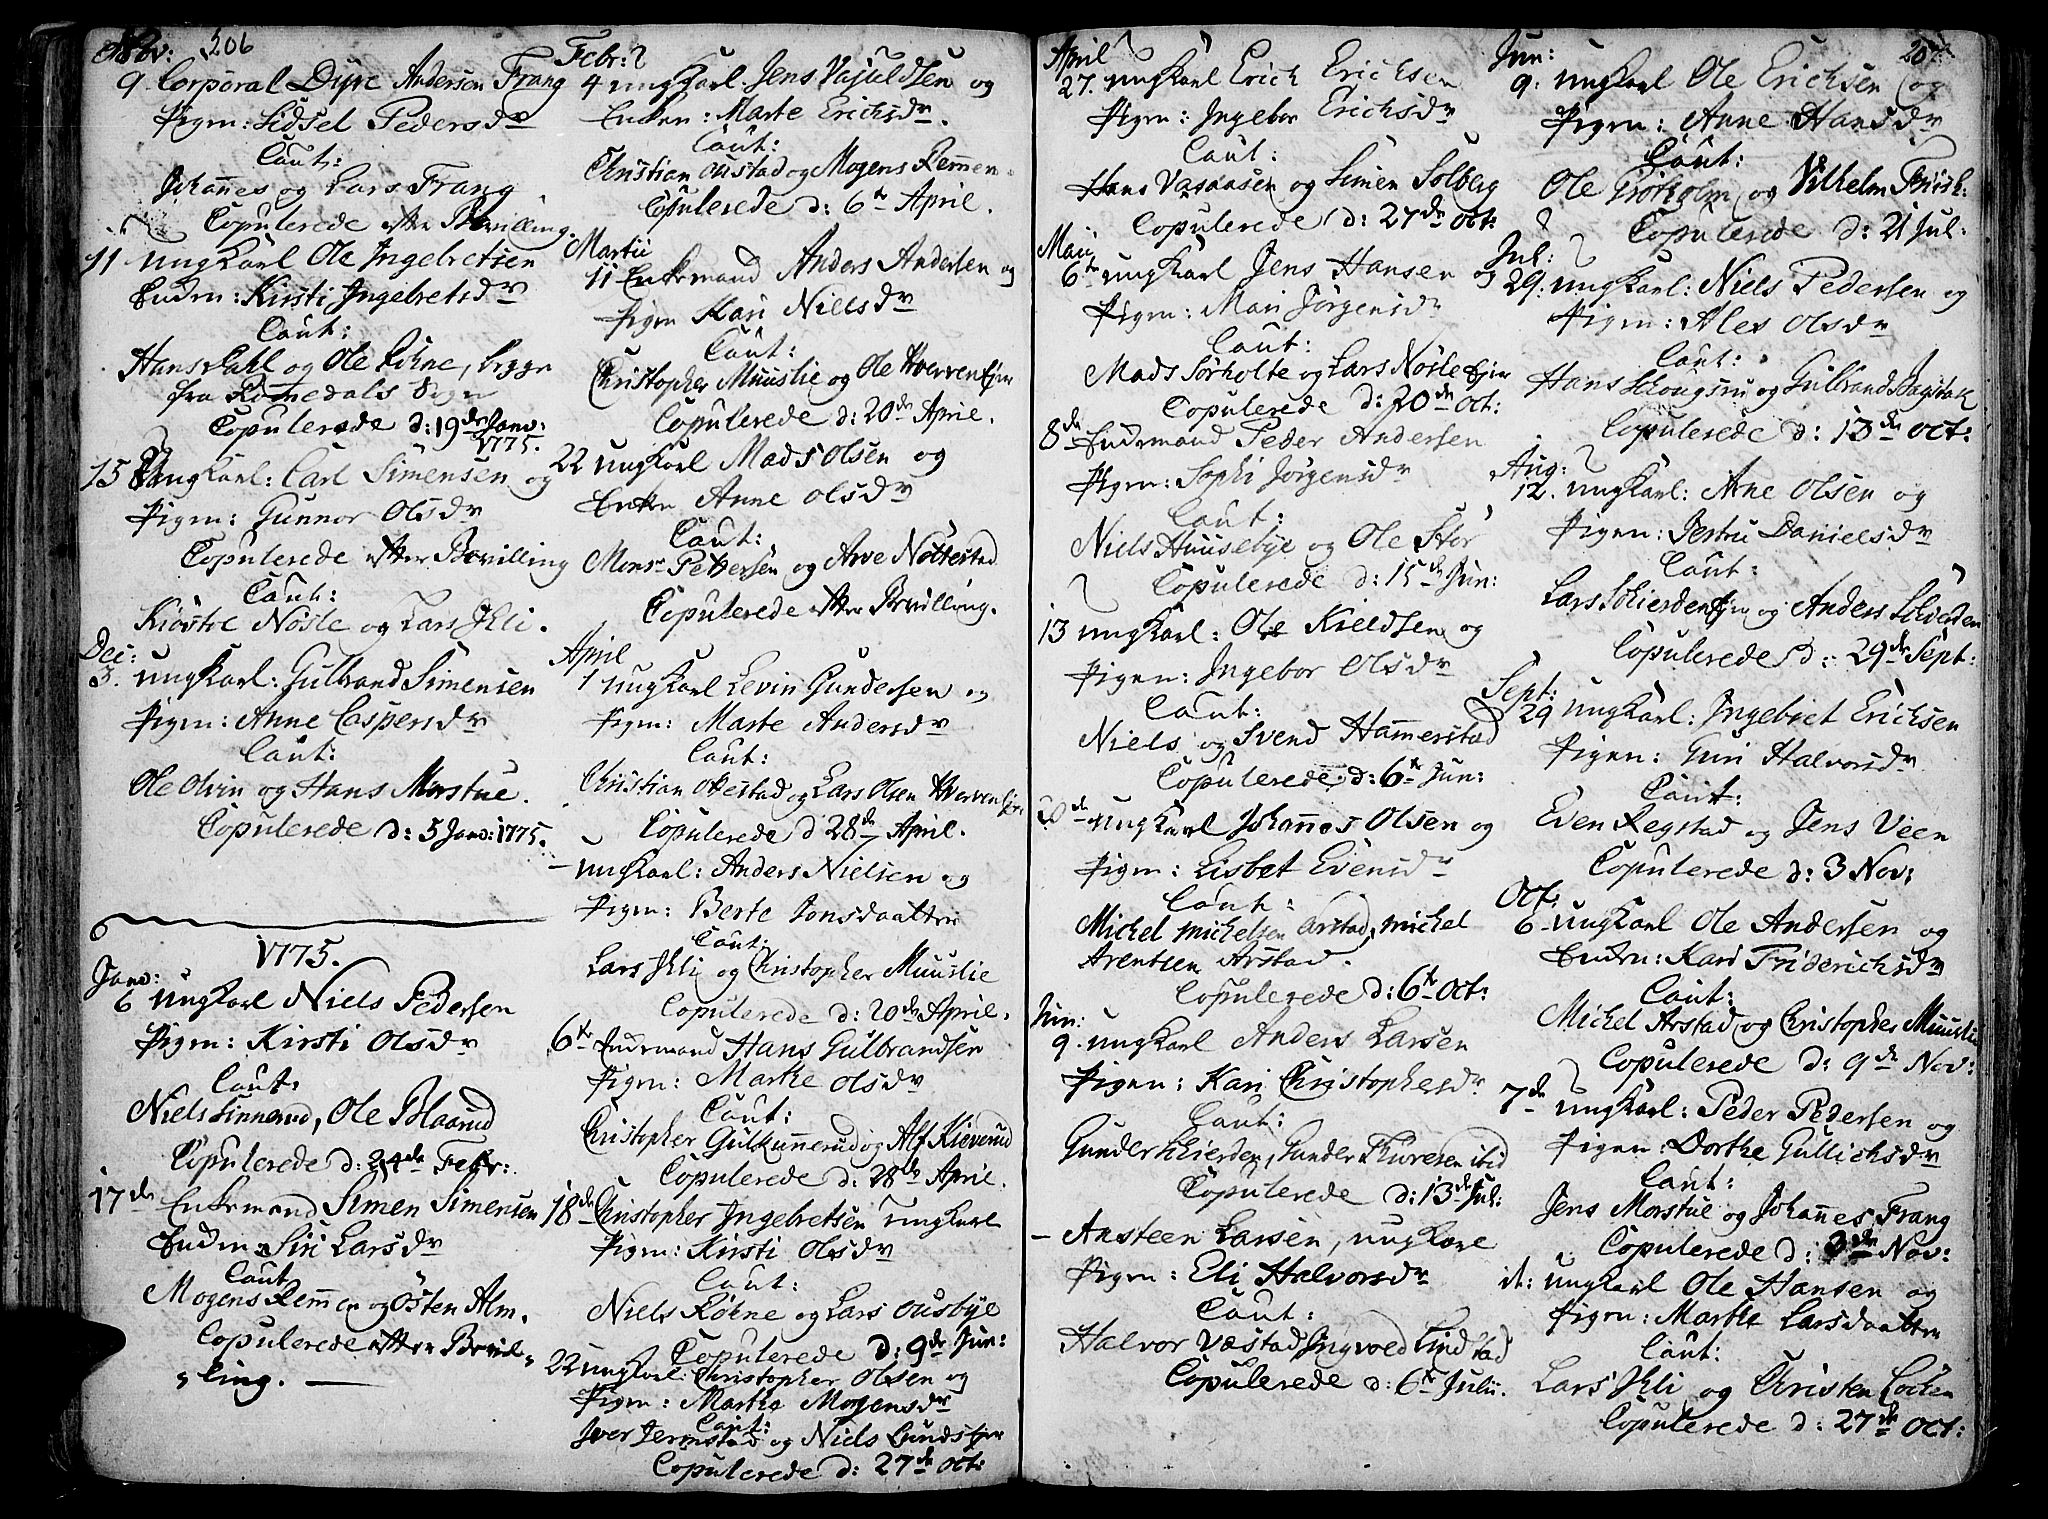 206
Nov:
9. Corporal Dyre Andersen Frang
Pigen: Sidsel Pedersdr
Caut:
Johan̄es og Lars Frang
Copulerede efter Bevilling.
11 Ungkarl Ole Ingebretsen
Enken: Kirsti Ingebretsdr
Caut:
Hans Dahl og Ole Röhne, begge
fra Rom̄edals Sogn
Copulerede d: 19de Janv:
1775.
15 Ungkarl: Carl Simensen og
Pigen: Gunnor Olsdr
Copulerede efter Bevilling
Caut:
Kiöstol Nösle og Lars Ihli.
Dec:
3. Ungkarl: Gulbrand Simensen
Pigen: Anne Caspersdr
Caut:
Ole Olvin og Hans Morstue.
Copulerede d: 5 Janv: 1775.
1775.
Janv:
6 Ungkarl Niels Pedersen
Pigen: Kirsti Olsdr
Caut:
Niels Finnerud, Ole Blaarud
Copulerede d: 24de Febr:
17de Enkemand Simen Simensen
Enken Siri Larsdr
Caut
Mogens Rem̄en og Östen Alm.
Copulerede efter Bevil-
ling.
Febr:
4 Ungkarl Jens Vajuldsen og
Enken: Marte Erichsdr.
Caut:
Christian Oustad og Mogens Rem̄en
Copulerede d: 6te April.
Martii
11 Enkemand Anders Andersen og
Pigen Kari Nielsdr
Caut:
Christopher Muuslie og Ole Hverven Ejer
Copulerede d: 20de April.
22 Ungkarl Mads Olsen og
Enken Anne Olsdr
Caut:
Monsr Pettersen og Arve Nöttestad
Copulerede efter Bevilling.
April
1 Ungkarl Levin Gundersen og
Pigen: Marte Andersdr
Caut:
Christian Ottestad og Lars Olsen Hverven Ejer
Copulerede d 28de April.
- Ungkarl: Anders Nielsen og
Pigen: Berte Jonsdaatter
Caut:
Lars Ihli og Christopher Muuslie
Copulerede d: 20de April.
6te Enkemand Hans Gulbrandsen
Pigen: Marthe Olsdr
Caut:
Christopher Gulkunnerud og Alf Kieverud
Copulerede d: 28de April.
18de Christopher Ingebretsen Ungkarl
Pigen: Kirsti Olsdr
Caut:
Niels Röhne og Lars Ousbye
Copulerede d: 9de Jun:
22 Ungkarl: Christopher Olsen og
Pigen: Marthe Mogensdr
Caut:
Iver Jermstad og Niels Lunds Ejer
Copulerede d: 27de Oct:
April
27. Ungkarl Erich Erichsen
Pigen: Ingebor Erichsdr
Caut:
Hans Vasaasen og Simen Solberg
Copulerede d: 27de Oct:
Maij
6te Ungkarl Jens Hansen og
Pigen: Mari Jörgensdr
Caut:
Mads Sörholte og Lars Nösle Ejer
Copulerede d: 20de Oct:
8de Enkemand Peder Andersen
Pigen: Sophi Jörgensdr
Caut:
Niels Huusebye og Ole Stor
Copulerede d: 15de Jun:
13 Ungkarl: Ole Kieldsen og
Pigen: Ingebor Olsdr
Caut:
Niels og Svend Ham̄erstad
Copulerede d: 6te Jun:
20de Ungkarl Johan̄es Olsen og
Pigen: Lisbet Evensdr
Caut:
Michel Michelsen Arstad, Michel
Arentsen Arstad.
Copulerede d: 6te Oct:
Jun:
9. Ungkarl Anders Larsen
Pigen: Kari Christophersdr
Caut:
Gunder Schierden, Gunder Thoresen ibid
Copulerede d: 13de Jul:
- Ansteen Larsen, Ungkarl
Pigen: Eli Halvorsdr
Caut:
Halvor Væstad, Ingvoed Lindstad
Copulerede d: 6te Julii.
Jun:
9: Ungkarl Ole Erichsen og
Pigen: Anne Hansdr
Caut:
Ole Grötholm og Vilhelm Frisk:
Copulerede d: 21 Jul:
Jul:
29: Ungkarl: Niels Pedersen og
Pigen: Ales Olsdr
Caut:
Hans Schougsru og Gulbrand
Copulerede d: 13de Oct:
Aug:
12. Ungkarl: Arne Olsen og
Pigen: Jertru Danielsdr
Caut:
Lars Schierden Ejer og Anders Schierden
Copulerede d: 29de Sept:
Sept:
29 Ungkarl: Ingebret Erichsen
Pigen: Guri Halvorsdr
Caut:
Even Regstad og Jens Veen
Copulerede d: 3 Nov:
Oct:
6 - Ungkarl Ole Andersen og
Enken: Kari Friderichsdr
Caut:
Michel Arstad og Christopher Muuslie
Copulerede d: 9de Nov:
7de Ungkarl: Peder Pedersen og
Pigen: Dorthe Gullichsdr
Caut:
Jens Morstue og Johan̄es Frang
Copulerede d: 3de Nov:
it: Ungkarl Ole Hansen og
Pigen: Marthe Larsdaatter
Caut:
Lars Ihli og Christen Locken
Copulerede d: 27de Oct: